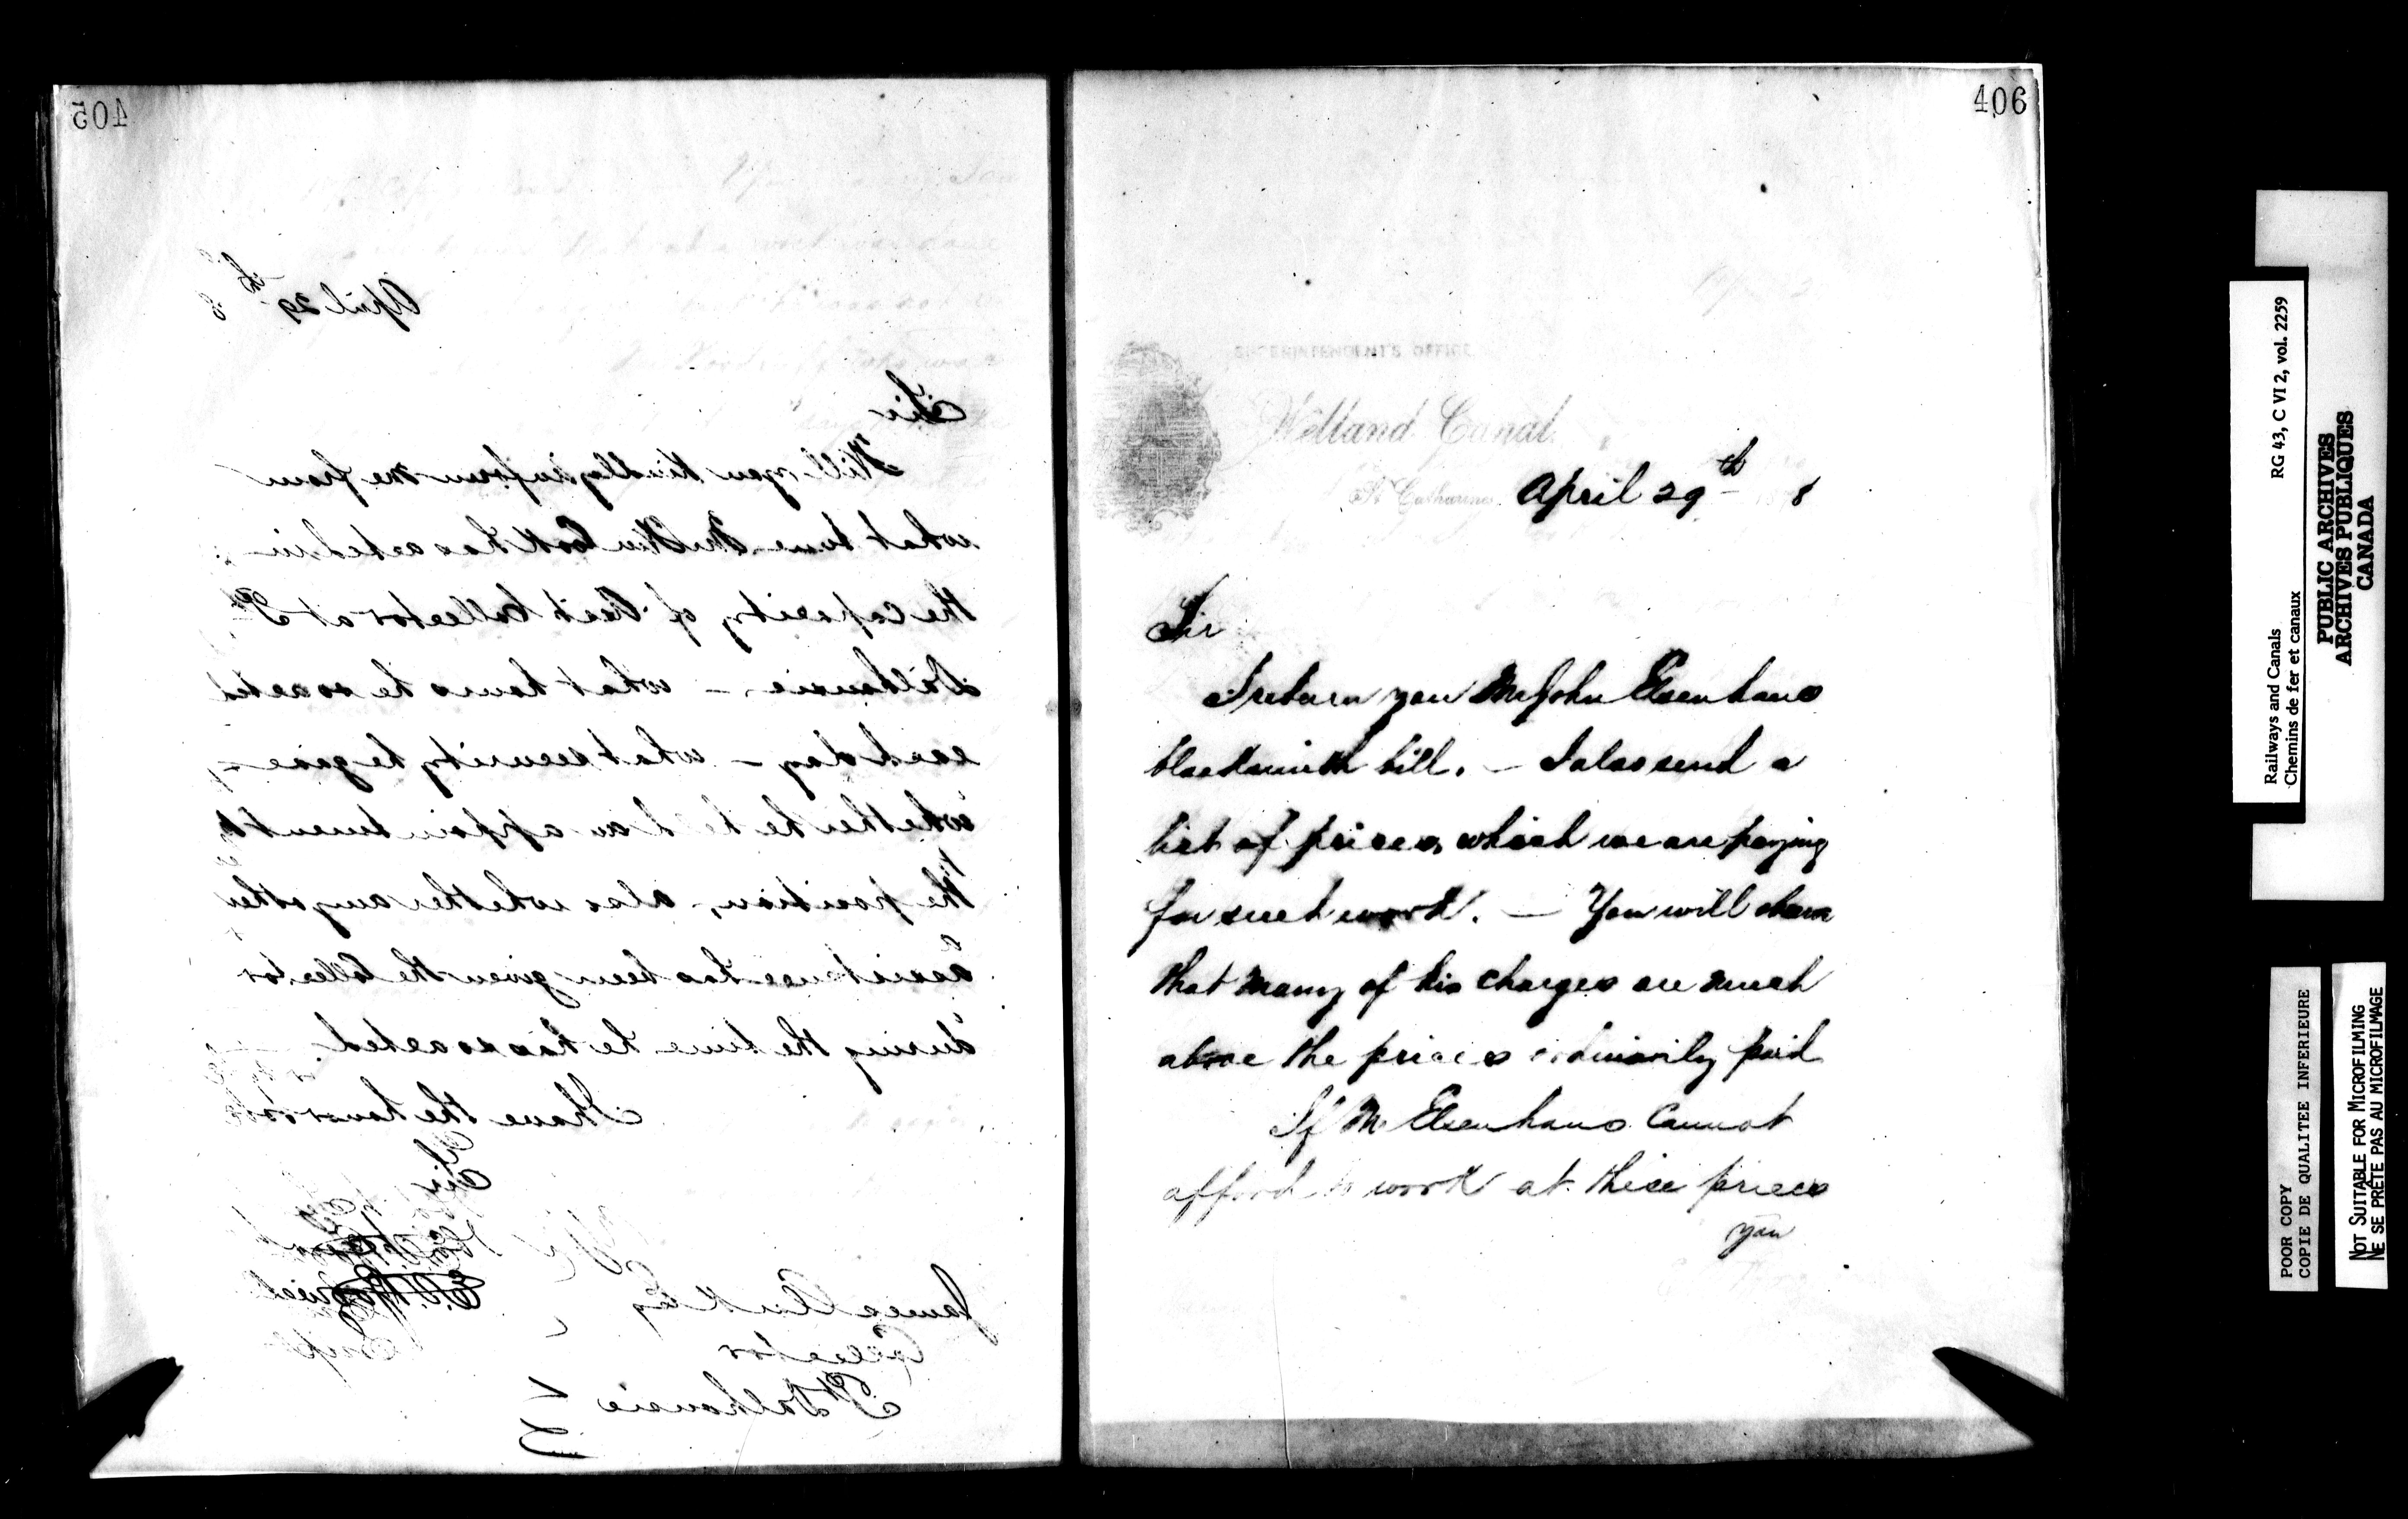 405
April 29th 8
Sir
Will you kindly inform me from
what time Matthew Cook has acted in
the capacity of Asst Collector at Pt
Dalhousie. – what hours he so acted
each day – what security he gave –
whether he held an appointment to
the position, – also whether any other
assistance has been given the Collector
during the time he has so acted. –
I have the honor to be
Sir
James Clark Esq
Collector
Pt Dalhousie
406
SUPERINTENDENT'S OFFICE
Welland Canal.
St Catharines April 29th 188
Sir
I return you Mr John Elsenhans
blacksmith bill. – I also send a
list of prices which we are paying
for such work. – You will observe
that many of his charges are much
above the prices ordinarily paid
If Mr Elsenhans cannot
afford to work at these prices
you
Railways and Canals RG 43, C VI 2, vol. 2259
Chemins de fer et canaux
PUBLIC ARCHIVES
ARCHIVES PUBLIQUES
CANADA
POOR COPY
COPIE DE QUALITEE INFERIEURE
NOT SUITABLE FOR MICROFILMING
NE SE PRÊTE PAS AU MICROFILMAGE